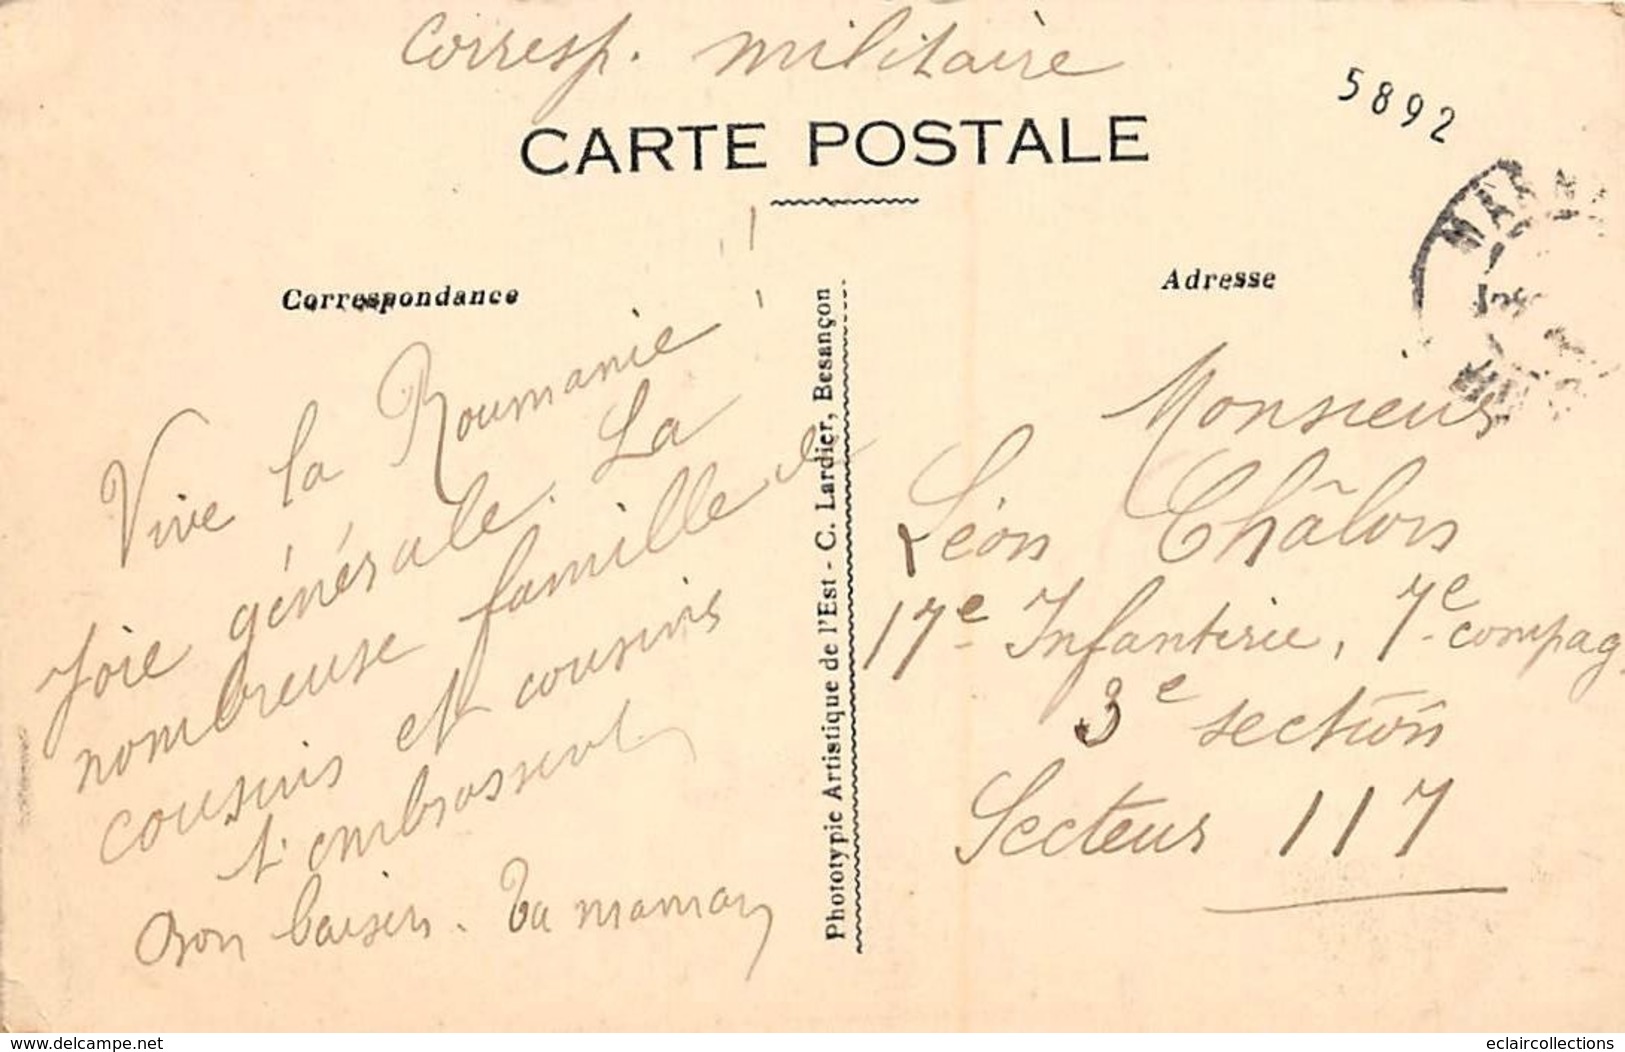 Corresp. militaire
5892
CARTE POSTALE
Correspondance
Adresse
Vive la Roumanie !
Joie générale. La
nombreuse famille de
cousins et cousins
t'embrassent.
Bon baisers. Ta maman
Phototypie Artistique de l'Est - C. Lardier, Besançon
Monsieur
Léon Châlon
17e Infanterie, 7e compag
3e section
Secteur 117
www.delcampe.net
eclaircollections